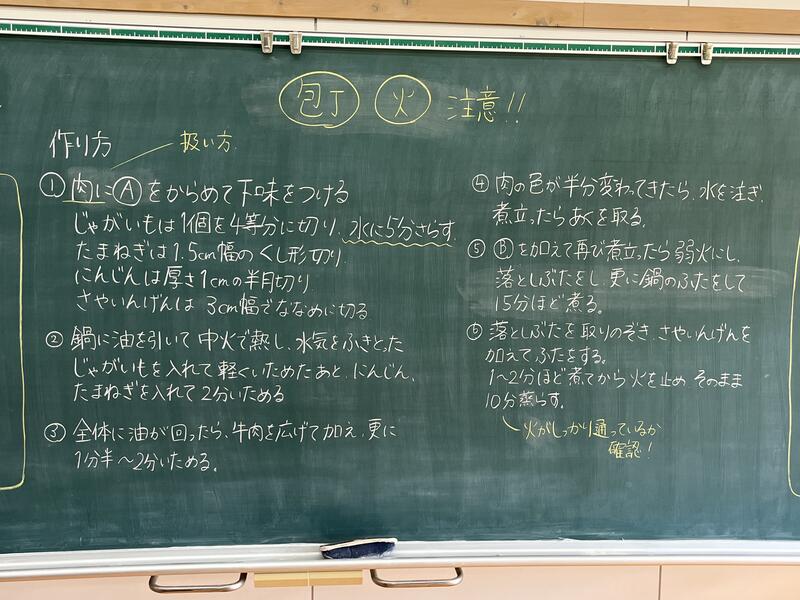 包丁 火 注意!!
作り方
扱い方
① 肉にⒶをからめて下味をつける
じゃがいもは1個を4等分に切り、水に5分さらす
たまねぎは1.5cm幅のくし形切り
にんじんは厚さ1cmの半月切り
さやいんげんは3cm幅でななめに切る
② 鍋に油を引いて中火で熱し、水気をふきとった
じゃがいもを入れて軽くいためたあと、にんじん、
たまねぎを入れて2分いためる
③ 全体に油が回ったら、牛肉を広げて加え、更に
1分半〜2分いためる。
④ 肉の色が半分変わってきたら、水を注ぎ、
煮立ったらあくを取る。
⑤ Ⓑを加えて再び煮立ったら弱火にし、
落としぶたをし、更に鍋のふたをして
15分ほど煮る。
⑥ 落としぶたを取りのぞき、さやいんげんを
加えてふたをする。
1〜2分ほど煮てから火を止め そのまま
10分蒸らす。
火がしっかり通っているか
確認!